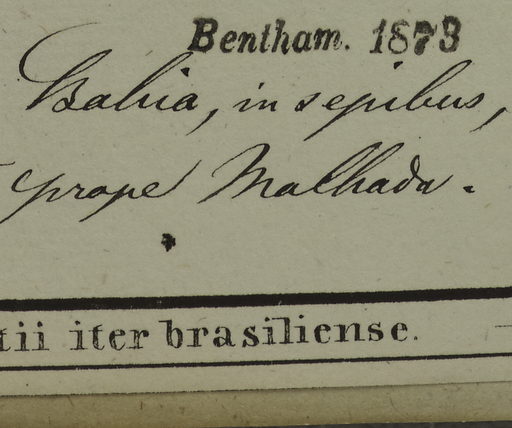 Bentham. 1873
Bahia, in sepibus,
prope Malhada.
tii iter brasiliense.